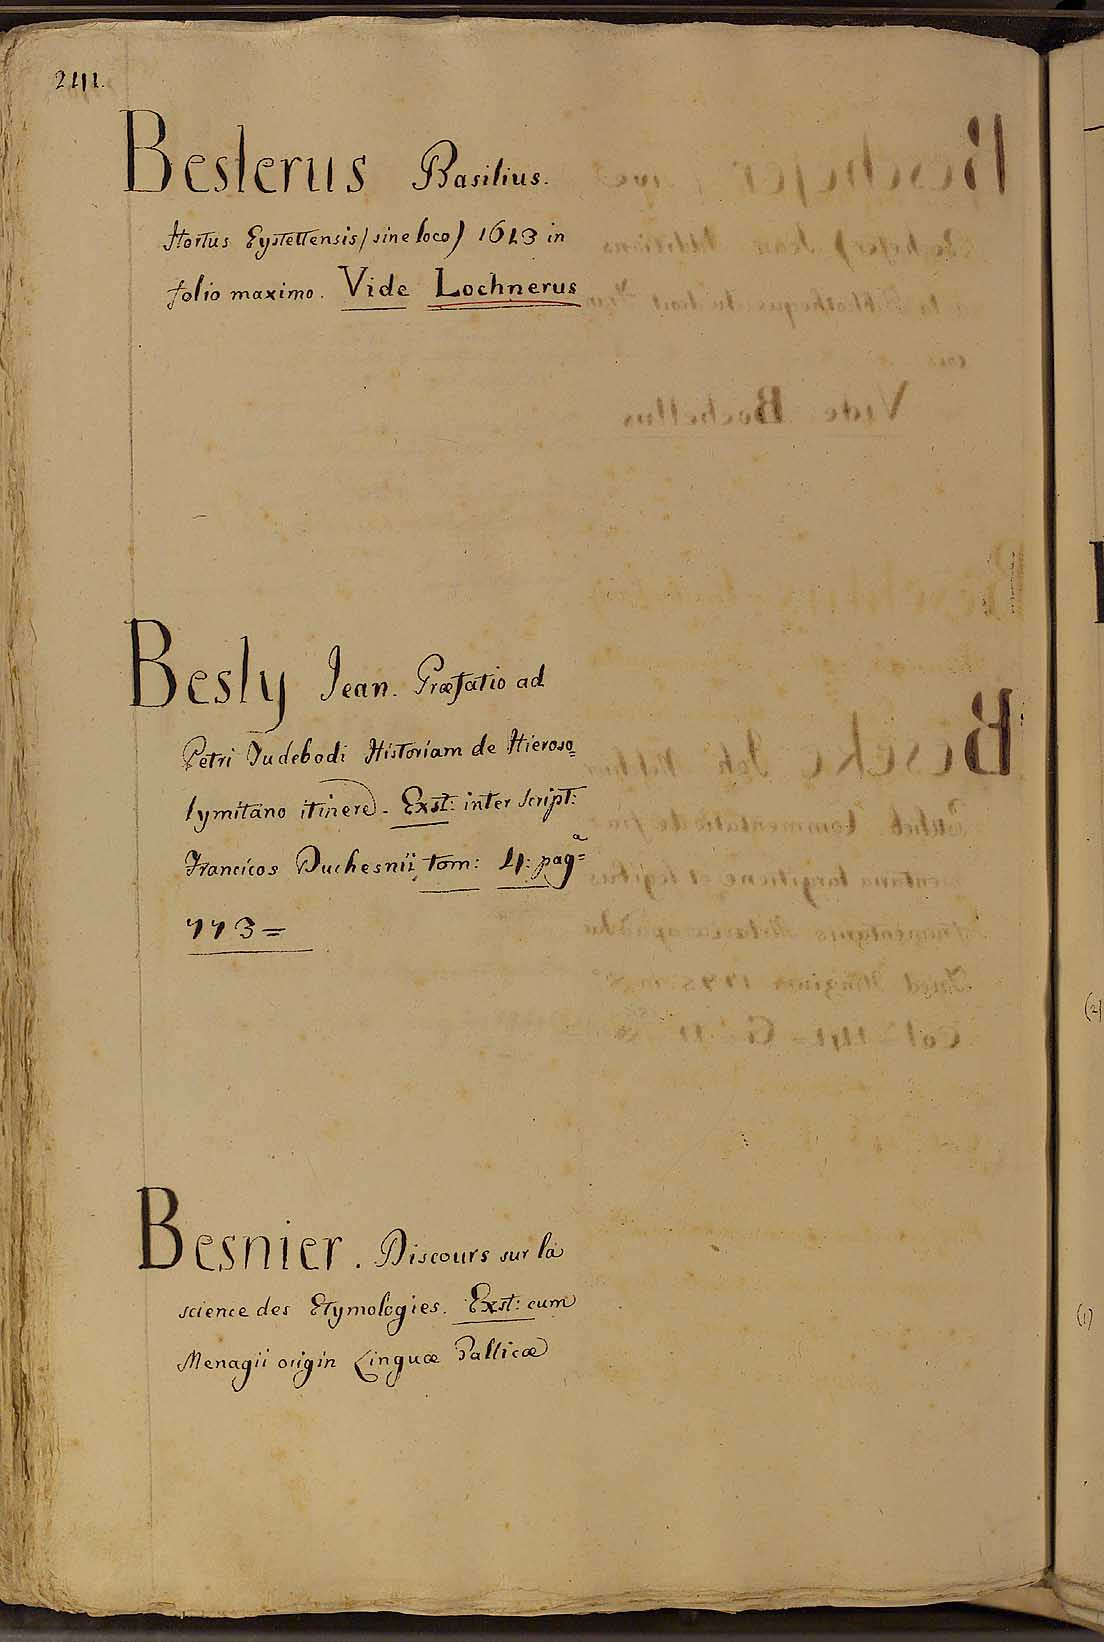 241.
Beslerus Basilius.
Hortus Eystettensis (sine loco) 1613 in
folio maximo. Vide Lochnerus
Besly Jean. Præfatio ad
Petri Tudebodi Historiam de Hieroso=
lymitano itinere. Exst: inter Script:
Francicos Duchesnii tom: 4: pag.ª=
773=
Besnier. Discours sur la
science des Etymologies. Exst: cum
Menagii origin Linguæ Gallicæ
(2)
(1)